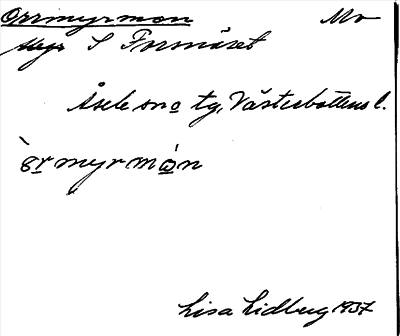 Orrmyrmon Mo
Myr S Formäset
Åsele sn o tg, Västerbottens l.
òrmyrmón
Lisa Lidberg 1937